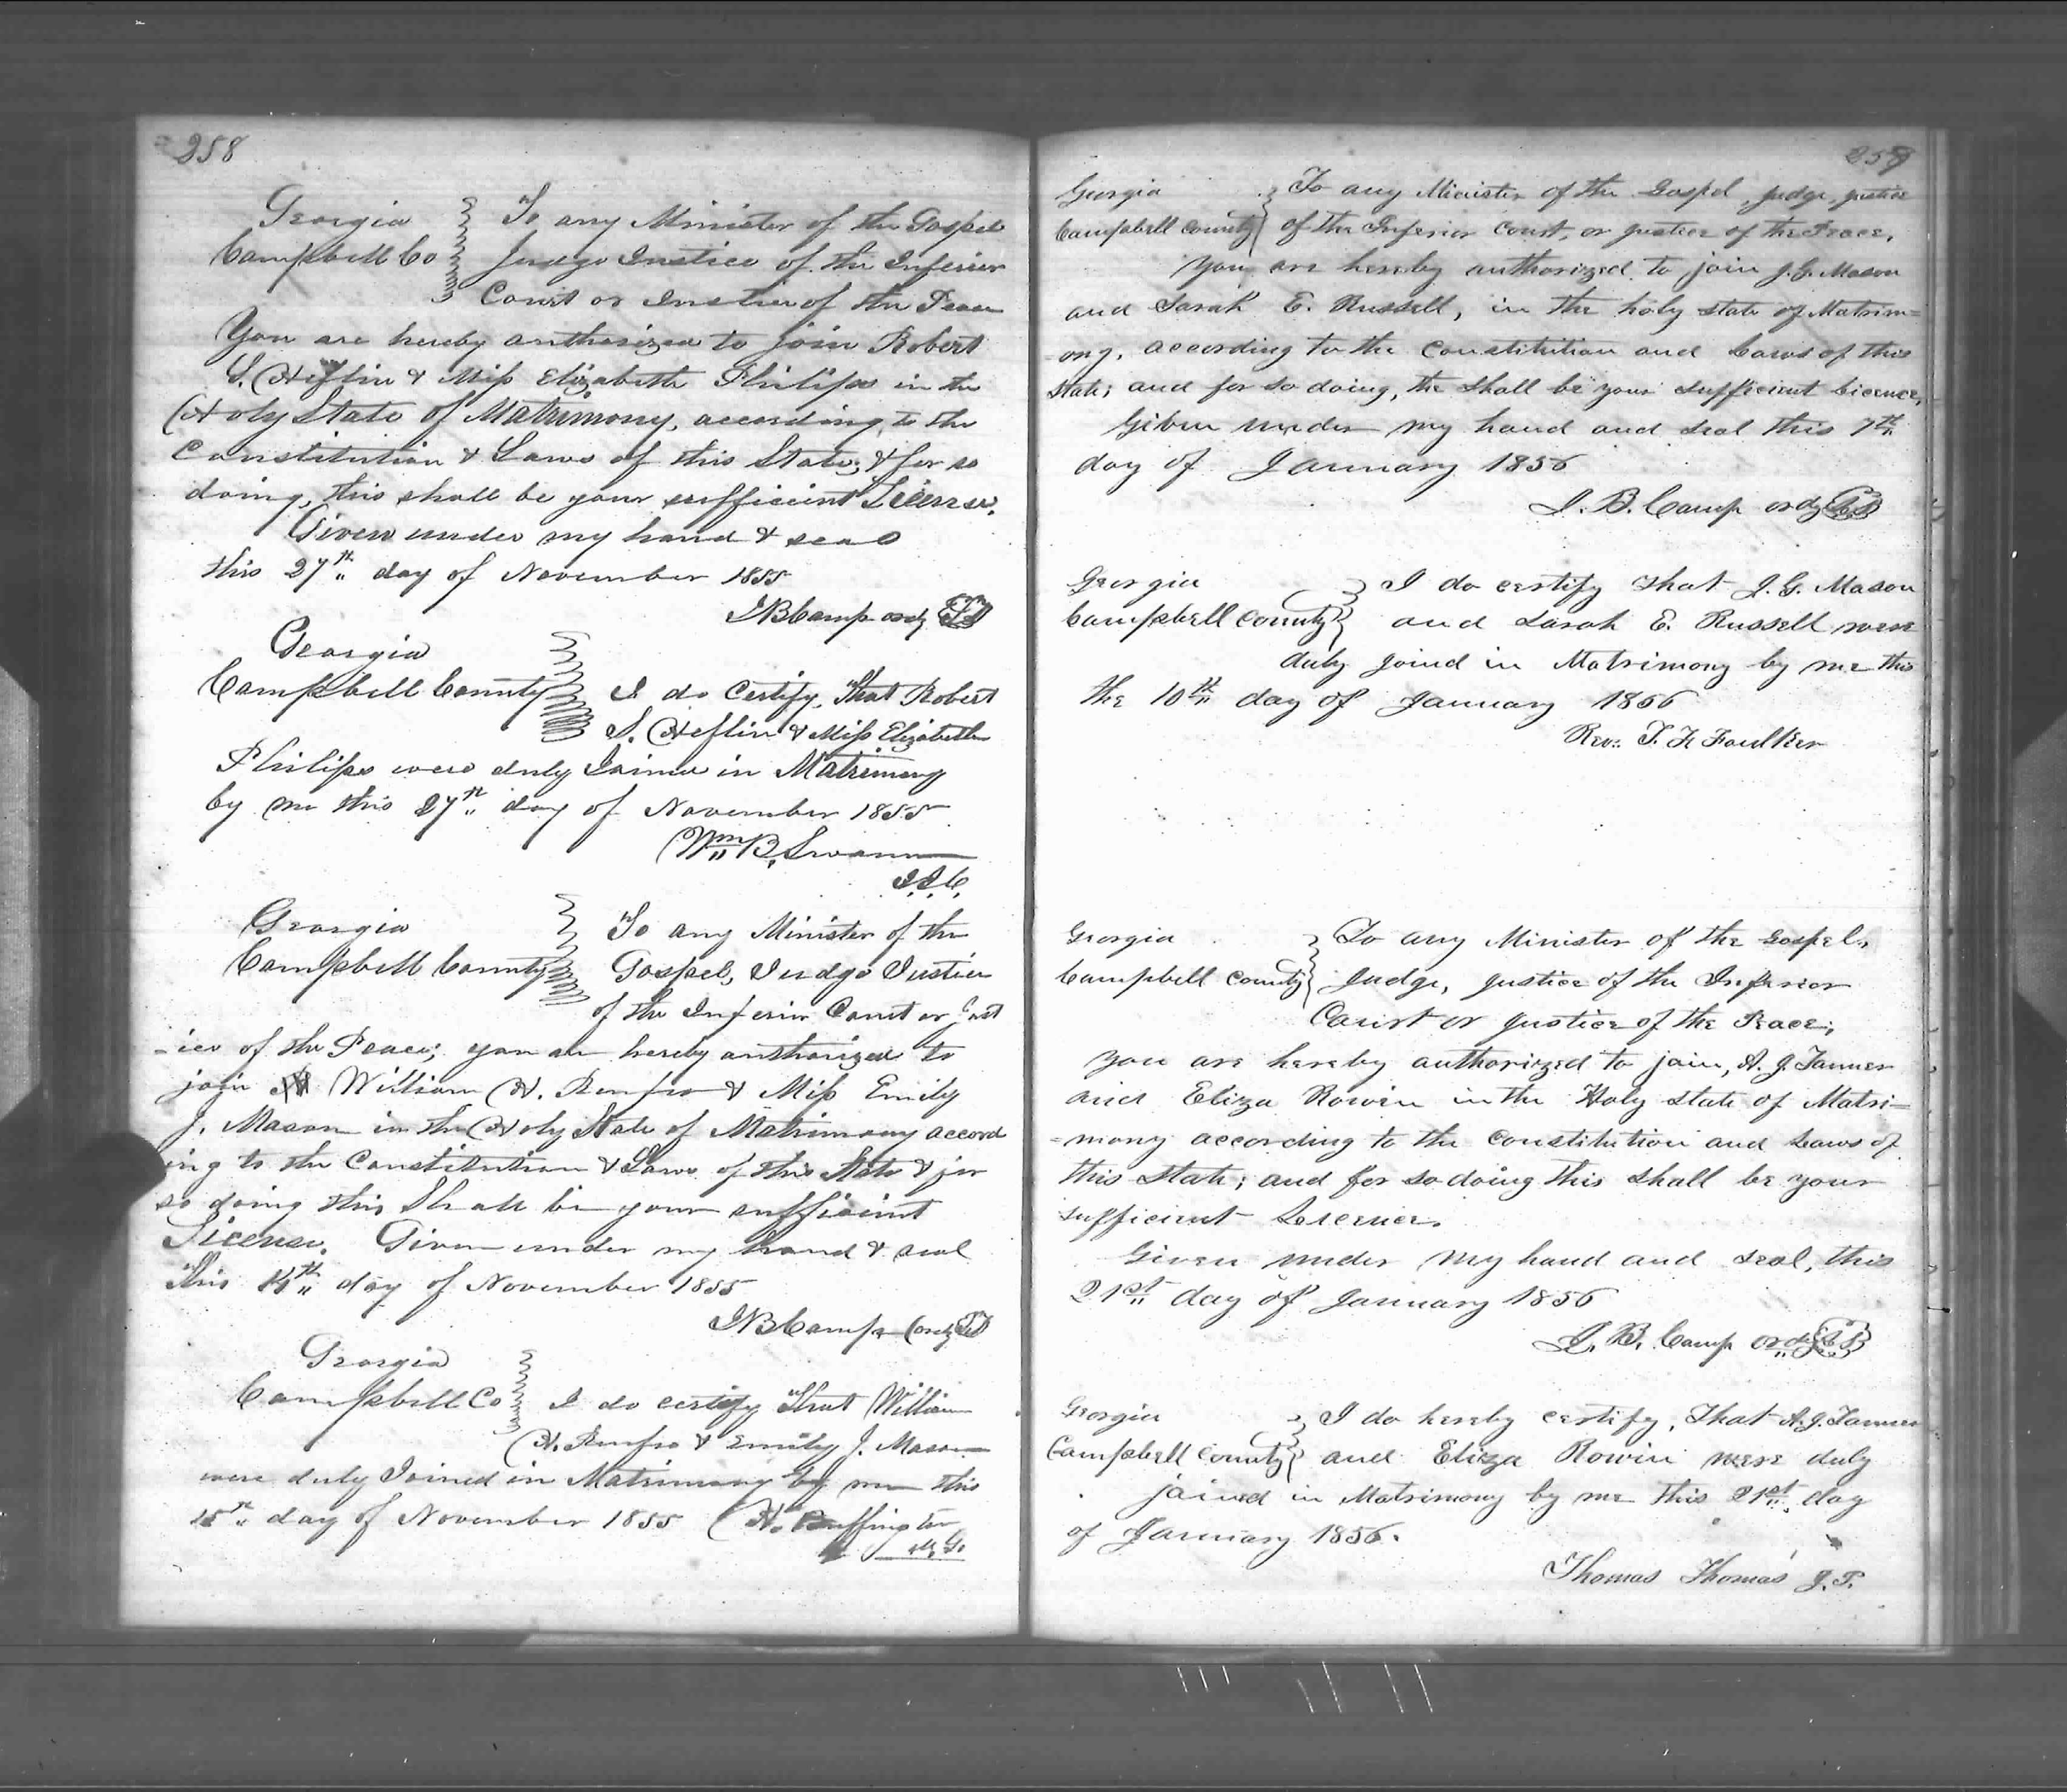 258
Georgia To any Minister of the Gospel
Campbell Co Judge Justice of the Inferior
Court or Justice of the Peace
You are hereby authorized to join Robert
S. Heflin & Miss Elizabeth Philips in the
Holy State of Matrimony, according to the
Constitution & Laws of this State; & for so
doing, this shall be your sufficient License.
Given under my hand & seal
this 27th day of November 1855
J B Camp ordy
Georgia
Campbell County I do Certify, That Robert
S. Heflin & Miss Elizabeth
Philips were duly Joined in Matrimony
by me this 27th day of November 1855
Wm B. Swann
J.I.C.
Georgia To any Minister of the
Campbell County Gospel, Judge Justice
of the Inferior Court or Just
-ice of the Peace; you are hereby authorized to
join William H. Renfro & Miss Emily
J. Mason in the Holy State of Matrimony accord
ing to the Constitution & Laws of this State & for
so doing this Shall be your sufficient
License. Given under my hand & seal
This 14th day of November 1855
J B Camp ordy
Georgia
Campbell Co I do certify That William
H. Renfro & Emily J. Mason
were duly Joined in Matrimony by me this
15th day of November 1855 H. Buffington
M. G.
259
Georgia To any Minister of the Gospel, judge, justice
Campbell County of the Inferior Court, or justice of the Peace,
You are hereby authorized to join J. G. Mason
and Sarah E. Russell, in the holy state of Matrim=
=ony, according to the Constitution and Laws of this
State; and for so doing, the shall be your sufficient Licence,
Given under my hand and seal this 7th
day of January 1856
J. B. Camp ordy LS
Georgia I do certify that J. G. Mason
Campbell County and Sarah E. Russell were
duly joind in Matrimony by me this
the 10th day of January 1856
Rev. T. F. Faulker
Georgia To any Minister of the Gospel,
Campbell County Judge, justice of the Inferior
Court or justice of the Peace,
You are hereby authorized to join, A. J. Tanner
and Eliza Rowin in the Holy state of Matri=
=mony according to the Constitution and Laws of
this State; and for so doing this shall be your
sufficient Lecence.
Given under my hand and seal, this
21st day of January 1856
J. B. Camp ordy LS
Georgia I do hereby certify, That A. J. Tanner
Campbell County and Eliza Rowin were duly
joined in Matrimony by me this 21st day
of January 1856.
Thomas Thomas J. P.